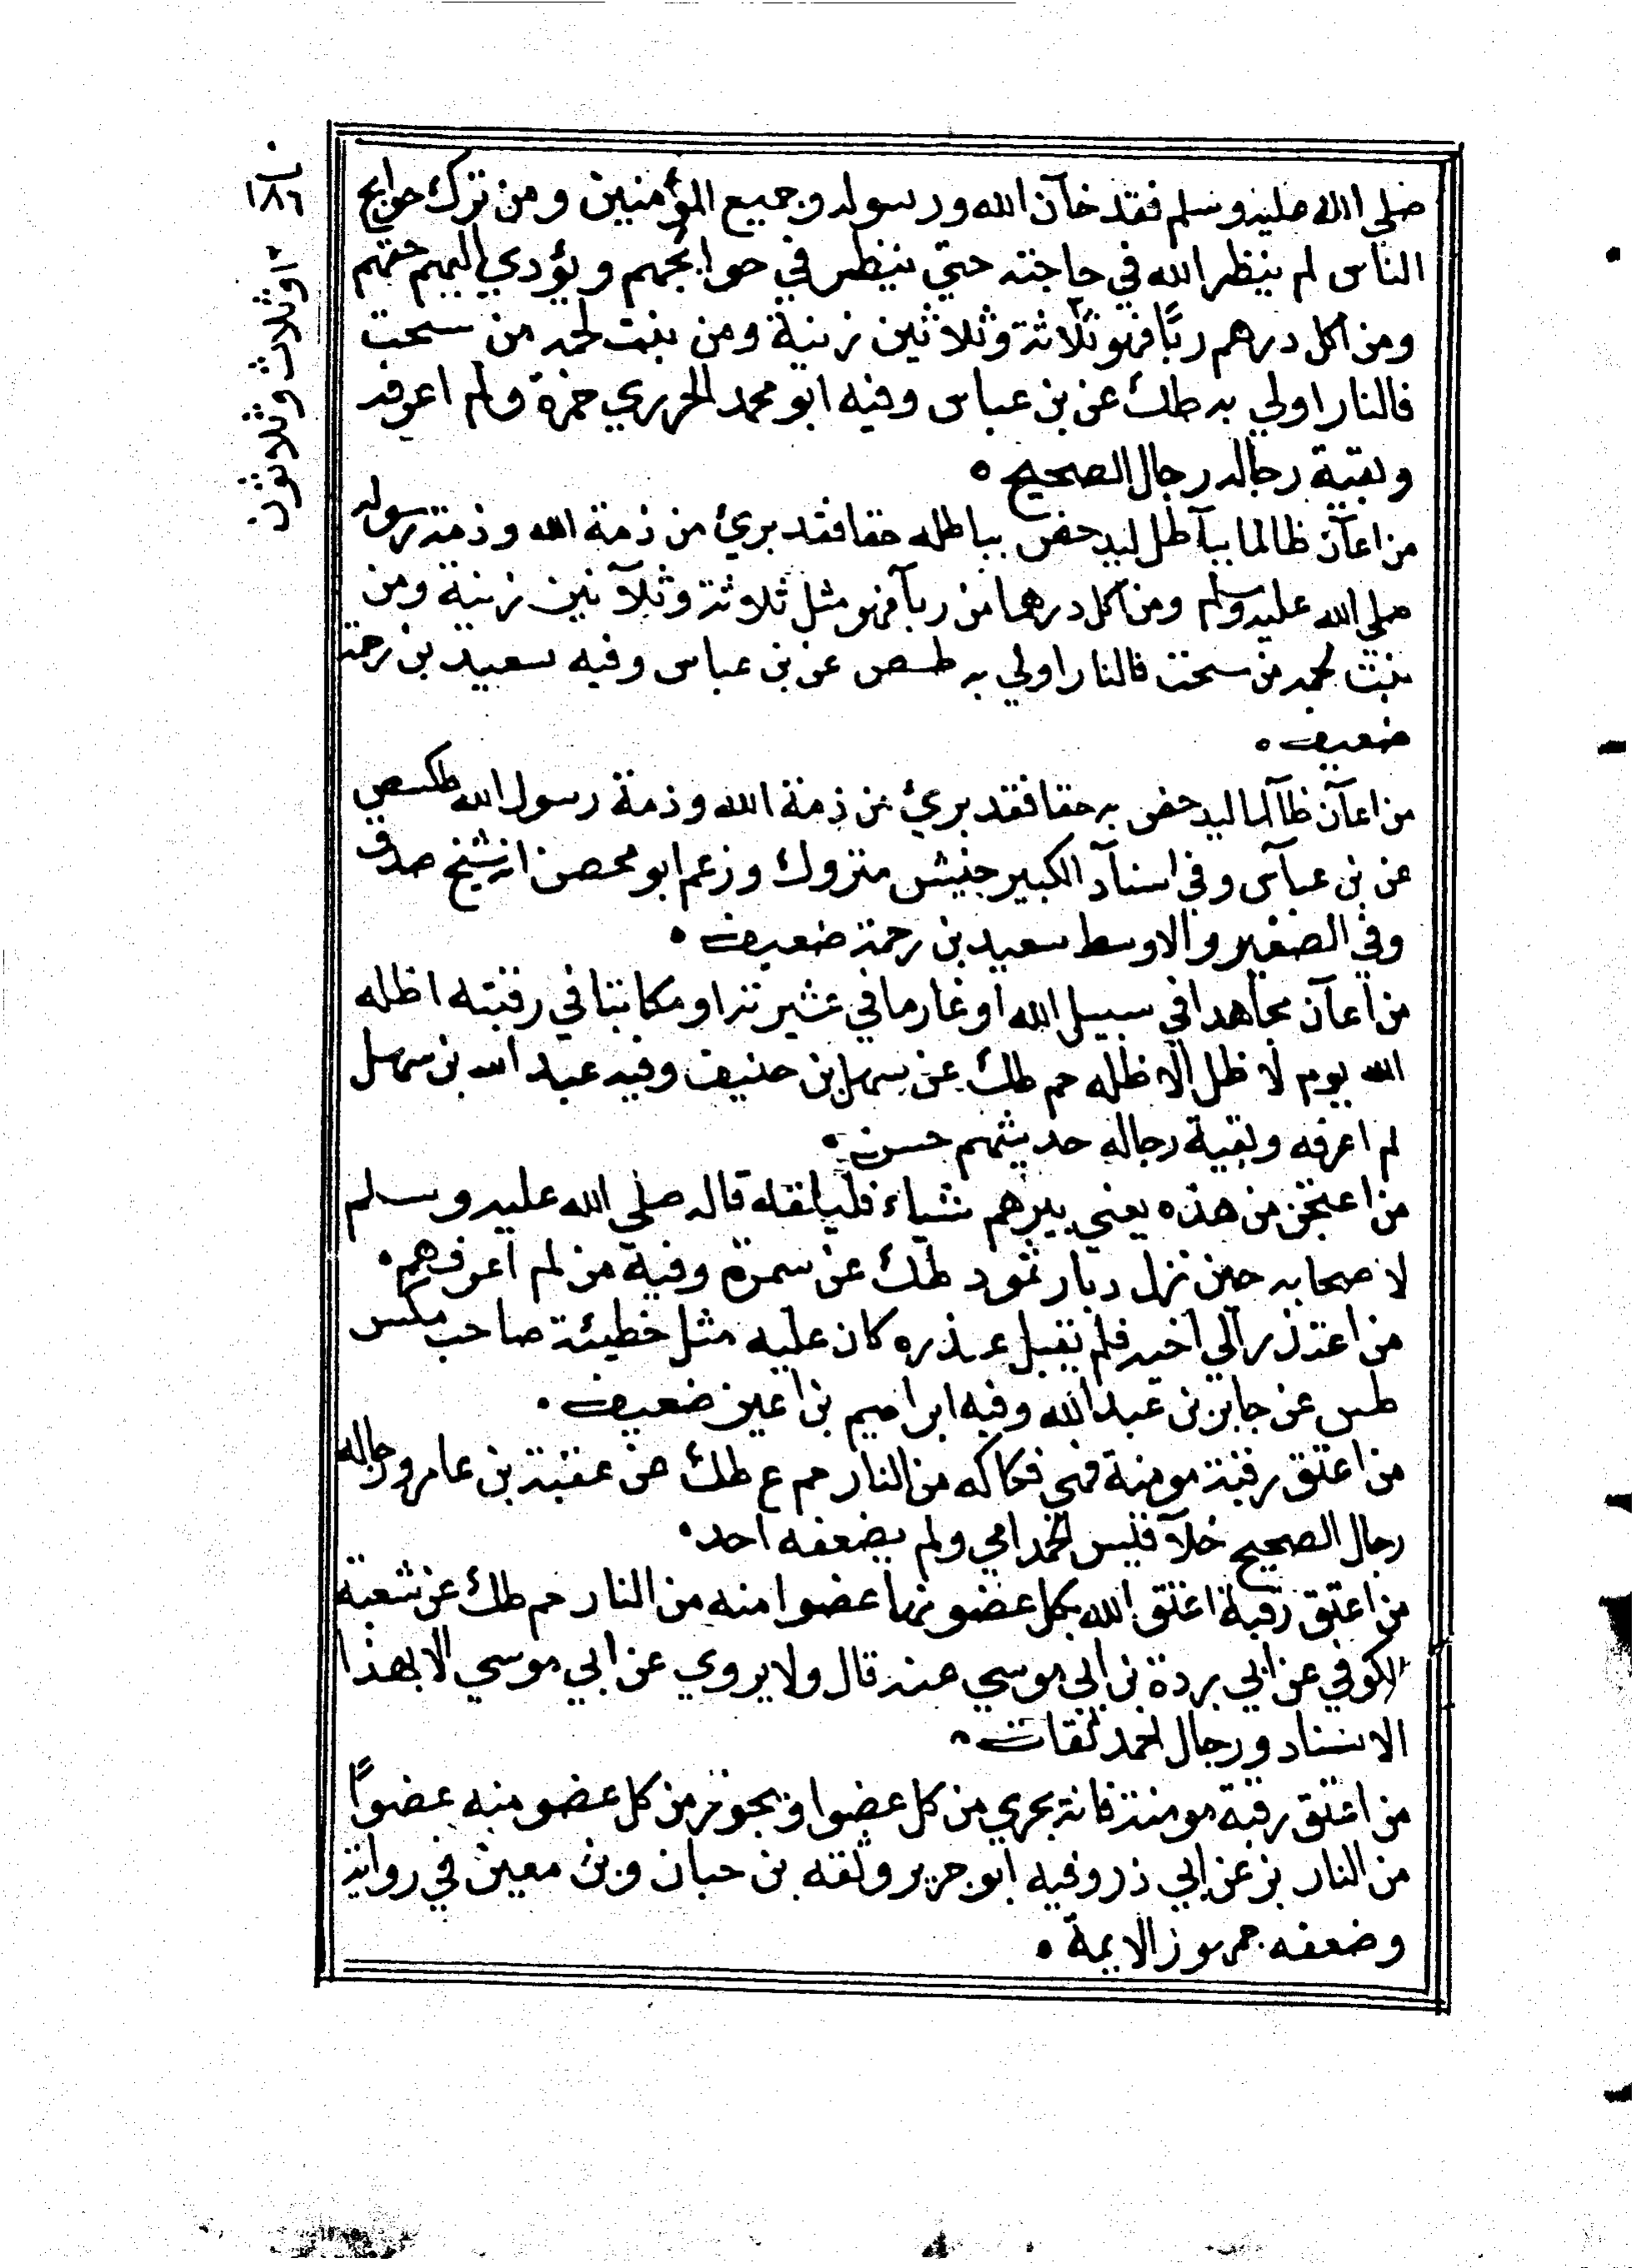 صلي الله عليه وسلم فقد خان الله ورسوله وجميع المؤمنين ومن ترك حوايج
الناس لم ينظر الله في حاجته حتي ينظر في حوايجهم ويؤدي اليهم حقهم
ومن اكل درهم ربًا فهو ثلاثة وثلاثين زنية ومن بنت لحمه من سحت
فالنار اولي به طك عن بن عباس وفيه ابو محمد الجزري حمزة ولم اعرفه
وبقية رجاله رجال الصحيح ه
من اعان ظالما بباطل ليدحض بباطله حقا فقد بريئ من ذمة الله وذمة رسوله
صلي الله عليه وسلم ومن اكل درهما من ربا فهو مثل ثلاثة وثلاثين زنية ومن
نبت لحمه من سحت فالنار اولي به طصص عن بن عباس وفيه سعيد بن رحمة
ضعيف ه
من اعان ظالما ليدحض به حقا فقد بريئ من ذمة الله وذمة رسول الله طكسص
عن بن عباس وفي اسناد الكبير حنش متروك وزعم ابو محصن انه شيخ صدق
وفي الصغير والاوسط سعيد بن رحمة ضعيف ه
من اعان مجاهدا في سبيل الله او غارما في عشيرته او مكاتبا في رقبته اظله
الله يوم لا ظل الا ظله حم طك عن سهل بن حنيف وفيه عبد الله بن سهل
لم اعرفه وبقية رجاله حديثهم حسن ه
من اعتجن من هذه يعني بيرهم شياء فليلقه قاله صلي الله عليه وسلم
لاصحابه حين نزل ديار ثمود طك عن سمرة وفيه من لم اعرفهم ه
من اعتذر الي اخيه فلم يقبل عذره كان عليه مثل خطيئة صاحب مكس
طس عن جابر بن عبد الله وفيه ابراهيم بن اعين ضعيف ه
من اعتق رقبة مومنة فهي فكاكه من النار حم ع طك عن عقبة بن عامر ورجاله
رجال الصحيح خلا قيس الجدامي ولم يضعفه احد ه
من اعتق رقبة اعتق الله بكل عضو منها عضوا منه من النار حم طك عن شعبة
الكوفي عن ابي بردة بن ابي موسي عنه قال ولا يروي عن ابي موسي الا بهذا
الاسناد ورجال احمد ثقات ه
من اعتق رقبة مومنة فانه يجزي من كل عضوا ويجوز من كل عضو منه عضواً
من النار بز عن ابي ذر وفيه ابو حريز وثقه بن حبان وبن معين في رواية
وضعفه جمهور الايمة ه
١٨٦
وثلاث وثلاثون